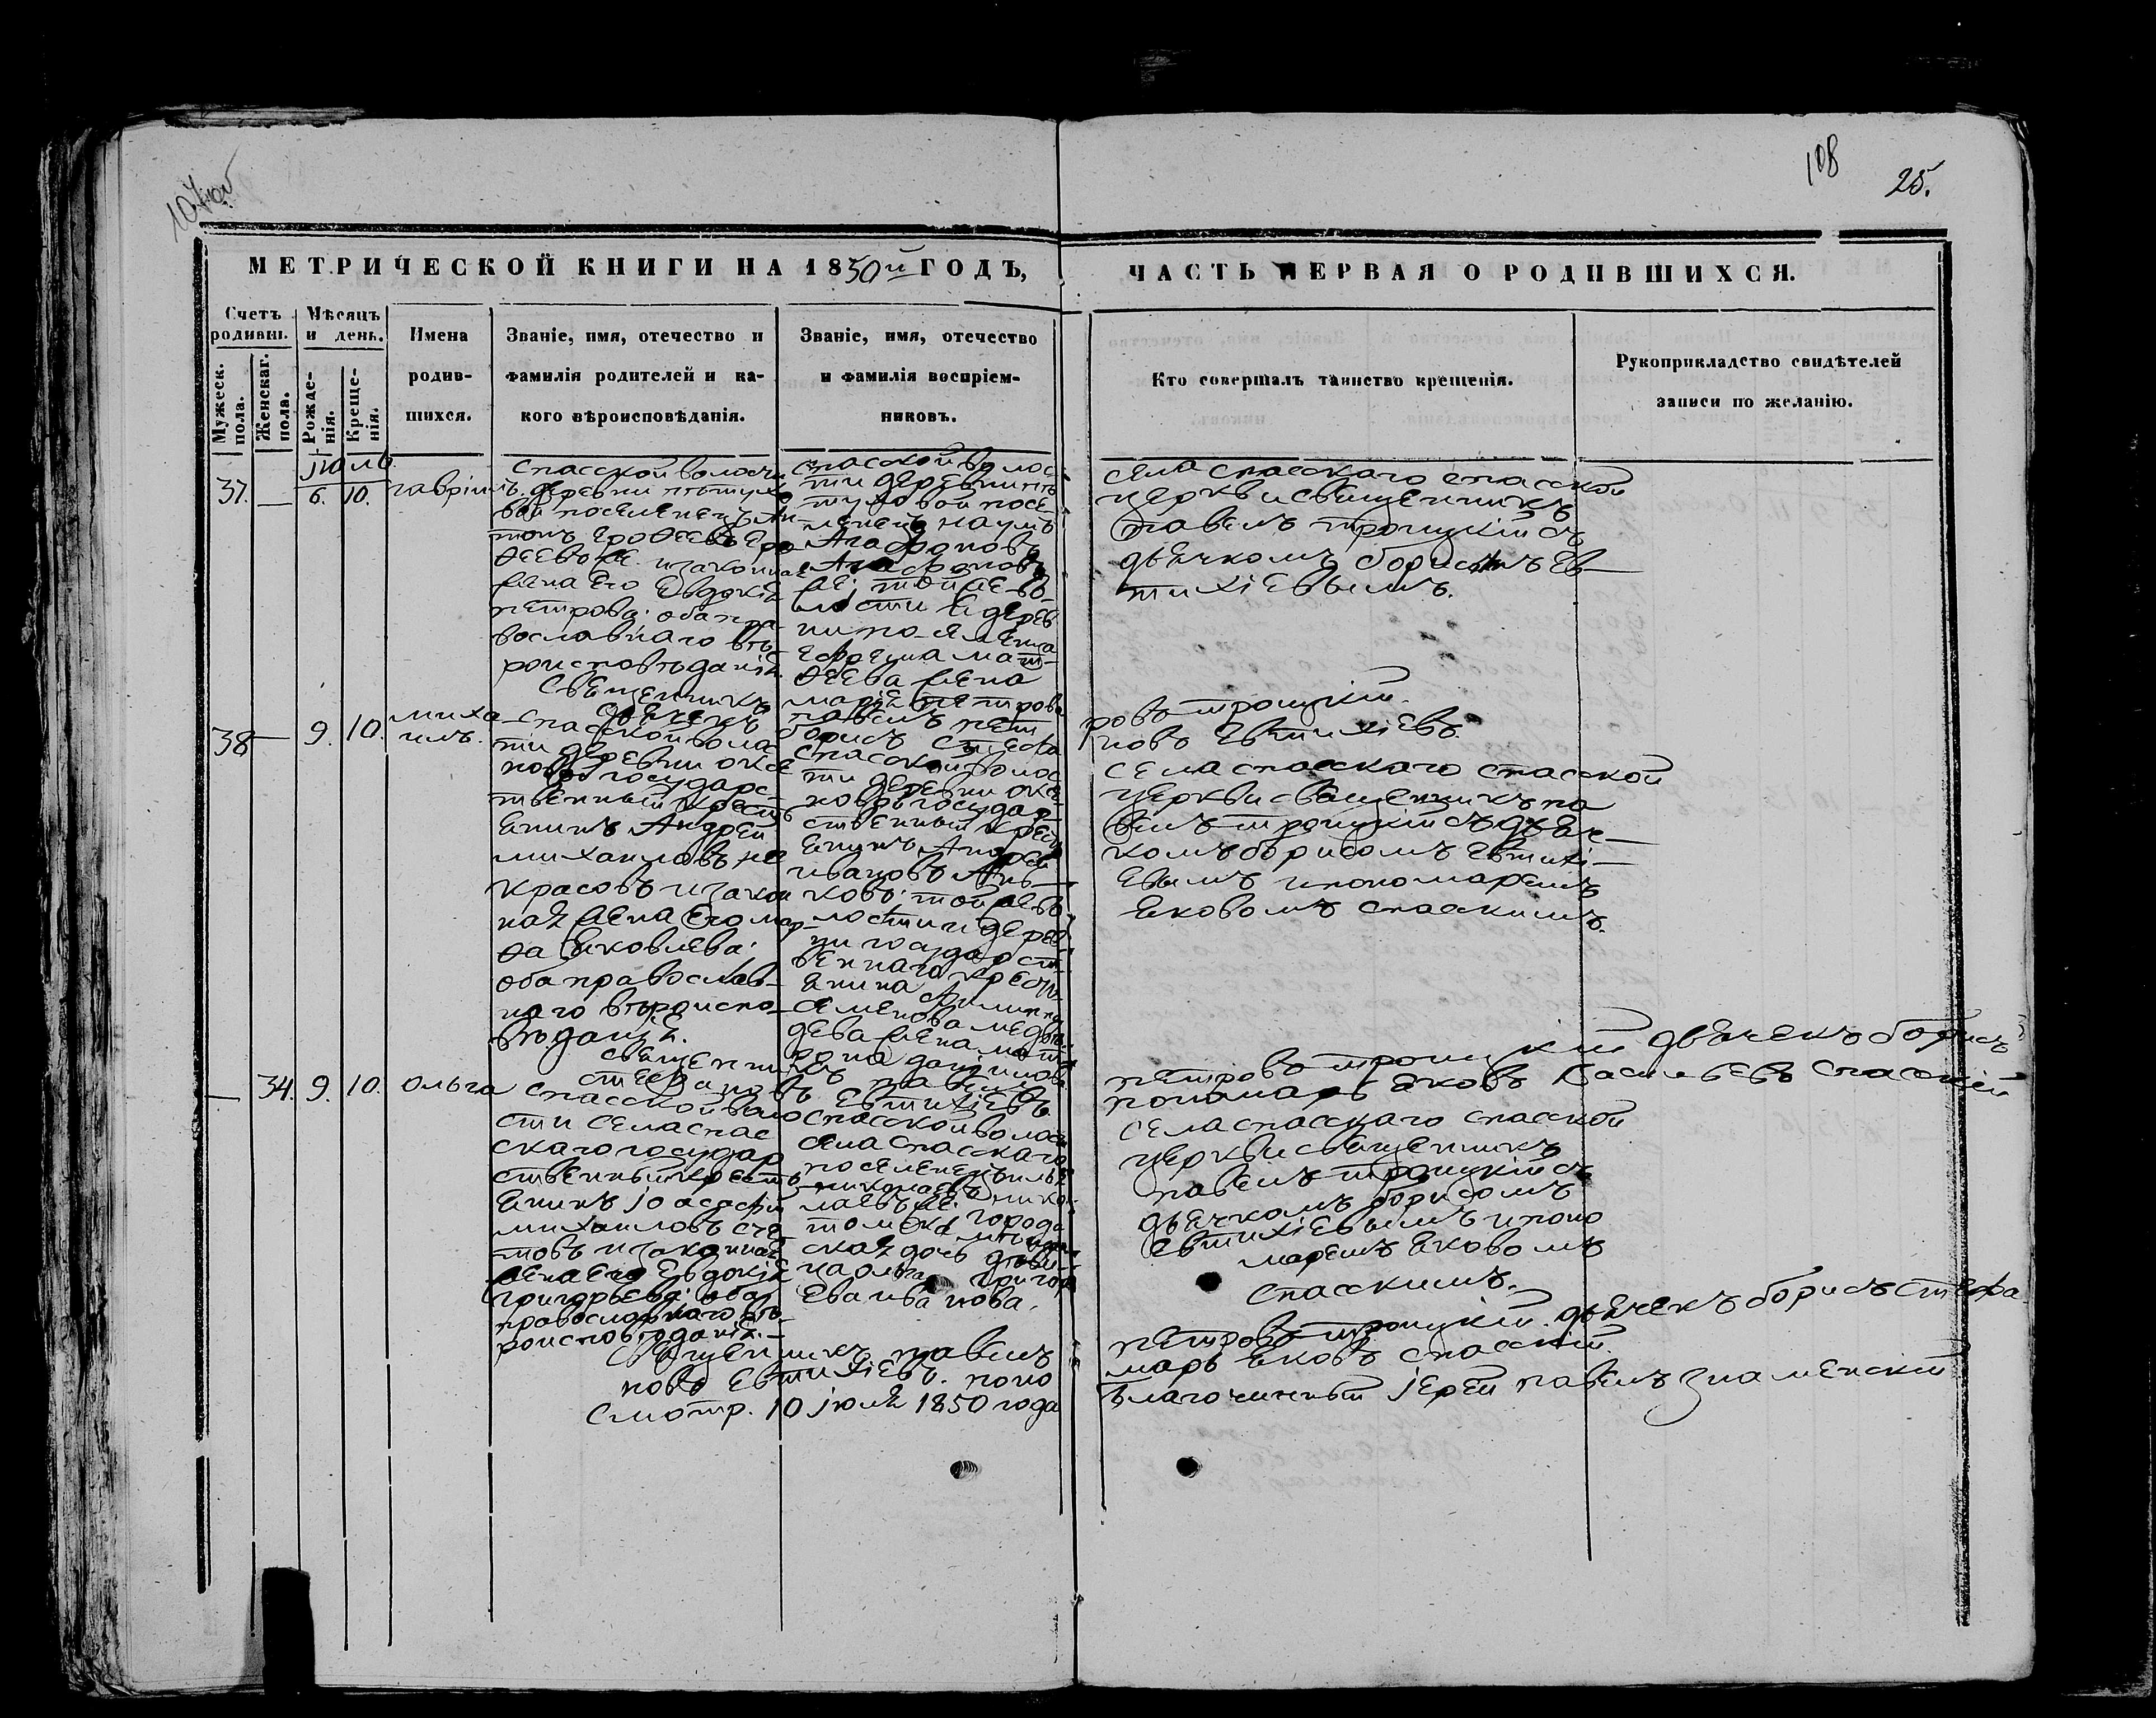 108
25.
МЕТРИЧЕСКОЙ КНИГИ НА 1850й ГОДЪ,
ЧАСТЬ ПЕРВАЯ О РОДИВШИХСЯ.
Счетъ родивш.
Мужеск. пола.
Женскаг. пола.
Мѣсяцъ и день.
Рожденія.
Крещенія.
Имена
родив-
шихся.
Званіе, имя, отечество и
фамилія родителей и ка-
кого вѣроисповѣданія.
Званіе, имя, отечество
и фамилія воспріем-
никовъ.
Кто совершалъ таинство крещенія.
Рукоприкладство свидѣтелей
записи по желанію.
іюль.
37. — 6. 10. гавріилъ.
спасской волости
деревни пѣтухо
вой поселенецъ Ан
тонъ Ерофеевъ Еро
феевъ же. и законная
жена его Евдокія
петрова: оба пра
вославнаго вѣ-
роисповѣданія.
спасской волос
ти деревни пѣ
туховой посе-
ленецъ наумъ
Агафоновъ
Агафоновъ
же; той же во-
лости и дерев
ни по-
матфеева жена
марія петрова
села спасскаго спасской
церкви священникъ
павелъ троицкій съ
дьячкомъ борисомъ Ев—
тихіевымъ.
священникъ павелъ пет
ровъ троицкій.
дьячекъ борисъ стефа
новъ Евтихіевъ.
38 — 9. 10. миха
илъ.
спасской волос
ти деревни оксе
новы государс-
твенный кресть
янинъ Андрей
михаиловъ не
красовъ и закон
ная жена его мар-
фа яковлева:
оба православ-
наго вѣроиспо-
вѣданія.
спасской волос
ти деревни оксе
новы государ
ственный крест
янинъ Андрей
ивановъ
ковъ: той же во
лости и дерев
ни государст
веннаго кресть
янина филиппа
семенова медве
дева жена мат
рона данилова
села спасскаго спасской
церкви священникъ па
велъ троицкій съ дьяч—
комъ борисомъ Евтихі—
евымъ и пономаремъ
яковомъ спасскимъ.
священникъ павелъ
петровъ троицкій дьячекъ борисъ
стефановъ Евтихіевъ
пономарь яковъ васильевъ спасскій
— 34. 9. 10. ольга
спасской воло
сти села спас
скаго государ
ственный кресть
янинъ Іоасафъ
михаиловъ сче
товъ и законная
жена его Евдокія
григорьева: оба
православнаго вѣ-
роисповѣданія.—
спасской волости
села спасскаго
поселенецъ илья
николаевъ нико
лаевъ же: города
томска мѣщан
ская дочь дѣви
ца ольга григорь
ева иванова.
села спасскаго спасской
церкви священникъ
павелъ троицкій съ
дьячкомъ борисомъ
Евтихіевымъ и поно
маремъ яковомъ
спасскимъ.
священникъ павелъ
петровъ троицкій. дьячекъ борисъ стефа
новъ Евтихіевъ. поно
марь яковъ спасскій.
Смотр. 10 іюля 1850 года
благочинный іерей павелъ знаменскій